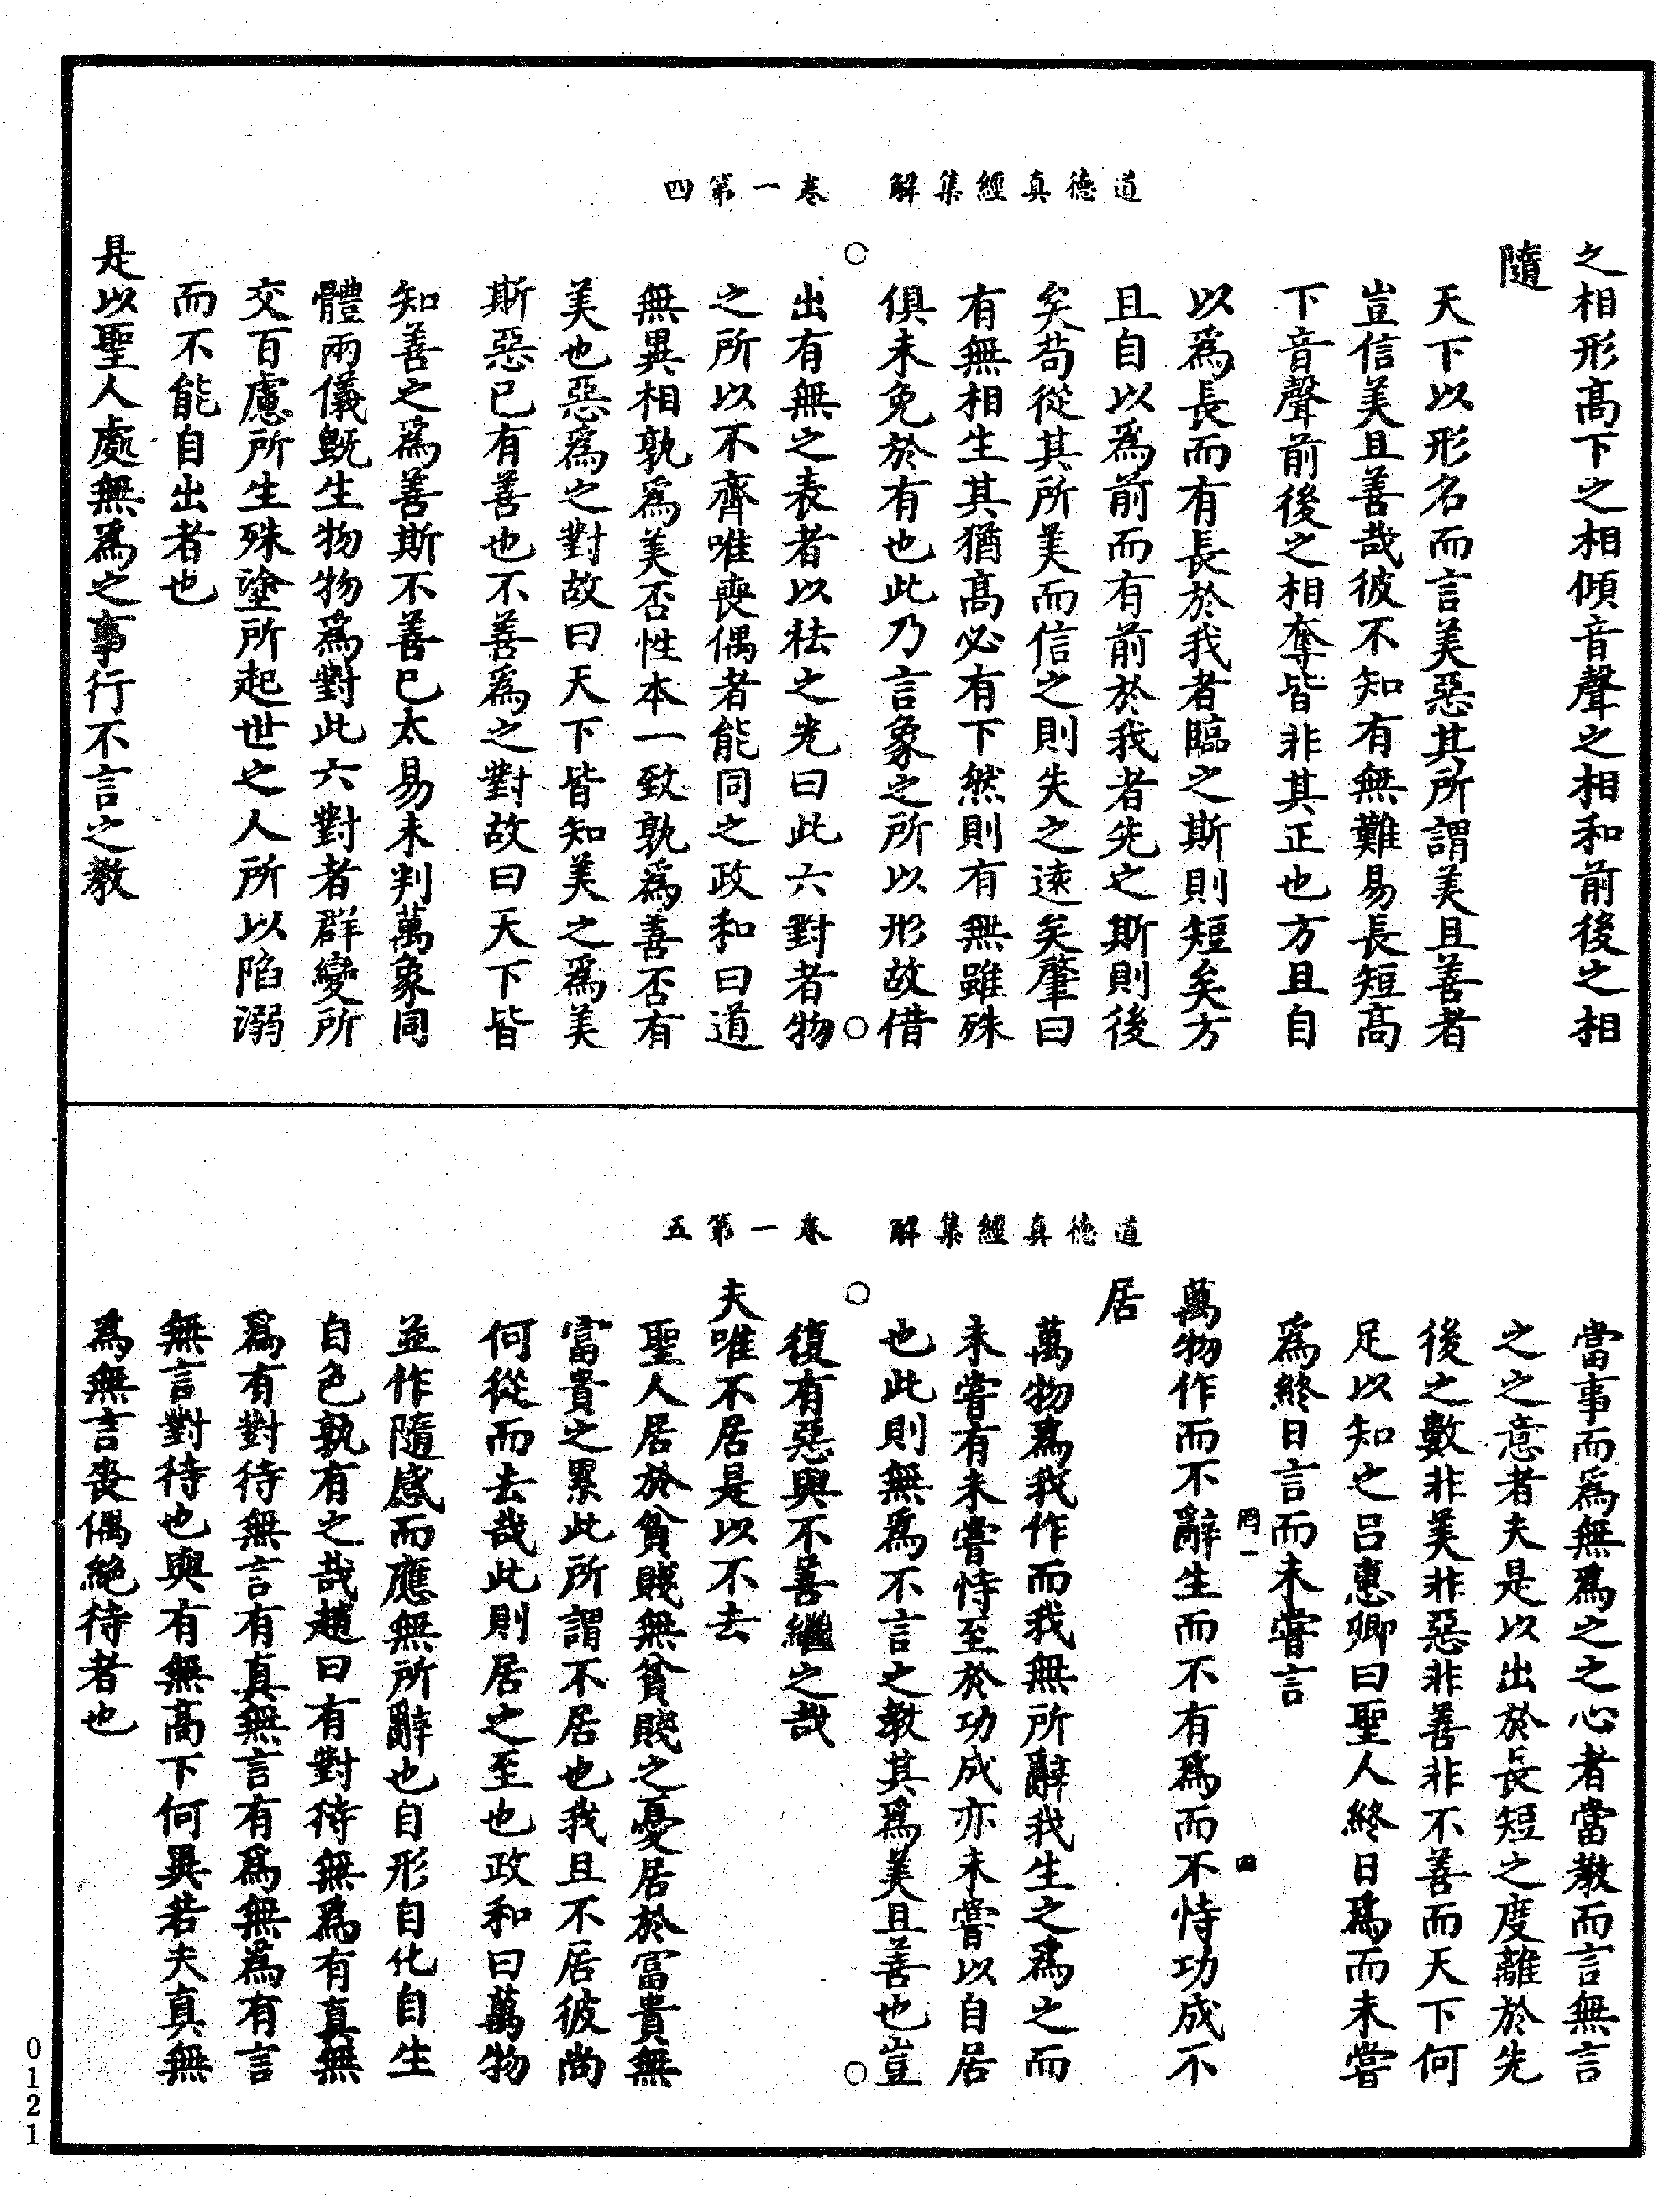 道德真經集解　卷一第四
之相形高下之相傾音聲之相和前後之相
隨
天下以形名而言美惡其所謂美且善者
豈信美且善哉彼不知有無難易長短高
下音聲前後之相奪皆非其正也方且自
以為長而有長於我者臨之斯則短矣方
且自以為前而有前於我者先之斯則後
矣苟從其所美而信之則失之遠矣肇曰
有無相生其猶高必有下然則有無雖殊
俱未免於有也此乃言象之所以形故借
出有無之表者以祛之光曰此六對者物
之所以不齊唯喪偶者能同之政和曰道
無異相孰為美否性本一致孰為善否有
美也惡為之對故曰天下皆知美之為美
斯惡已有善也不善為之對故曰天下皆
知善之為善斯不善已太易未判萬象同
體兩儀既生物物為對此六對者群變所
交百慮所生殊塗所起世之人所以陷溺
而不能自出者也
是以聖人處無為之事行不言之教
道德真經集解　卷一第五
當事而為無為之之心者當教而言無言
之之意者夫是以出於長短之度離於先
後之數非美非惡非善非不善而天下何
足以知之呂惠卿曰聖人終日為而未嘗
為終日言而未嘗言
罔一　四
萬物作而不辭生而不有為而不恃功成不
居
萬物為我作而我無所辭我生之為之而
未嘗有未嘗恃至於功成亦未嘗以自居
也此則無為不言之教其為美且善也豈
復有惡與不善繼之哉
夫唯不居是以不去
聖人居於貧賤無貧賤之憂居於富貴無
富貴之累此所謂不居也我且不居彼尚
何從而去哉此則居之至也政和曰萬物
並作隨感而應無所辭也自形自化自生
自色孰有之哉趙曰有對待無為有真無
為有對待無言有真無言有為無為有言
無言對待也與有無高下何異若夫真無
為無言喪偶絕待者也
0121